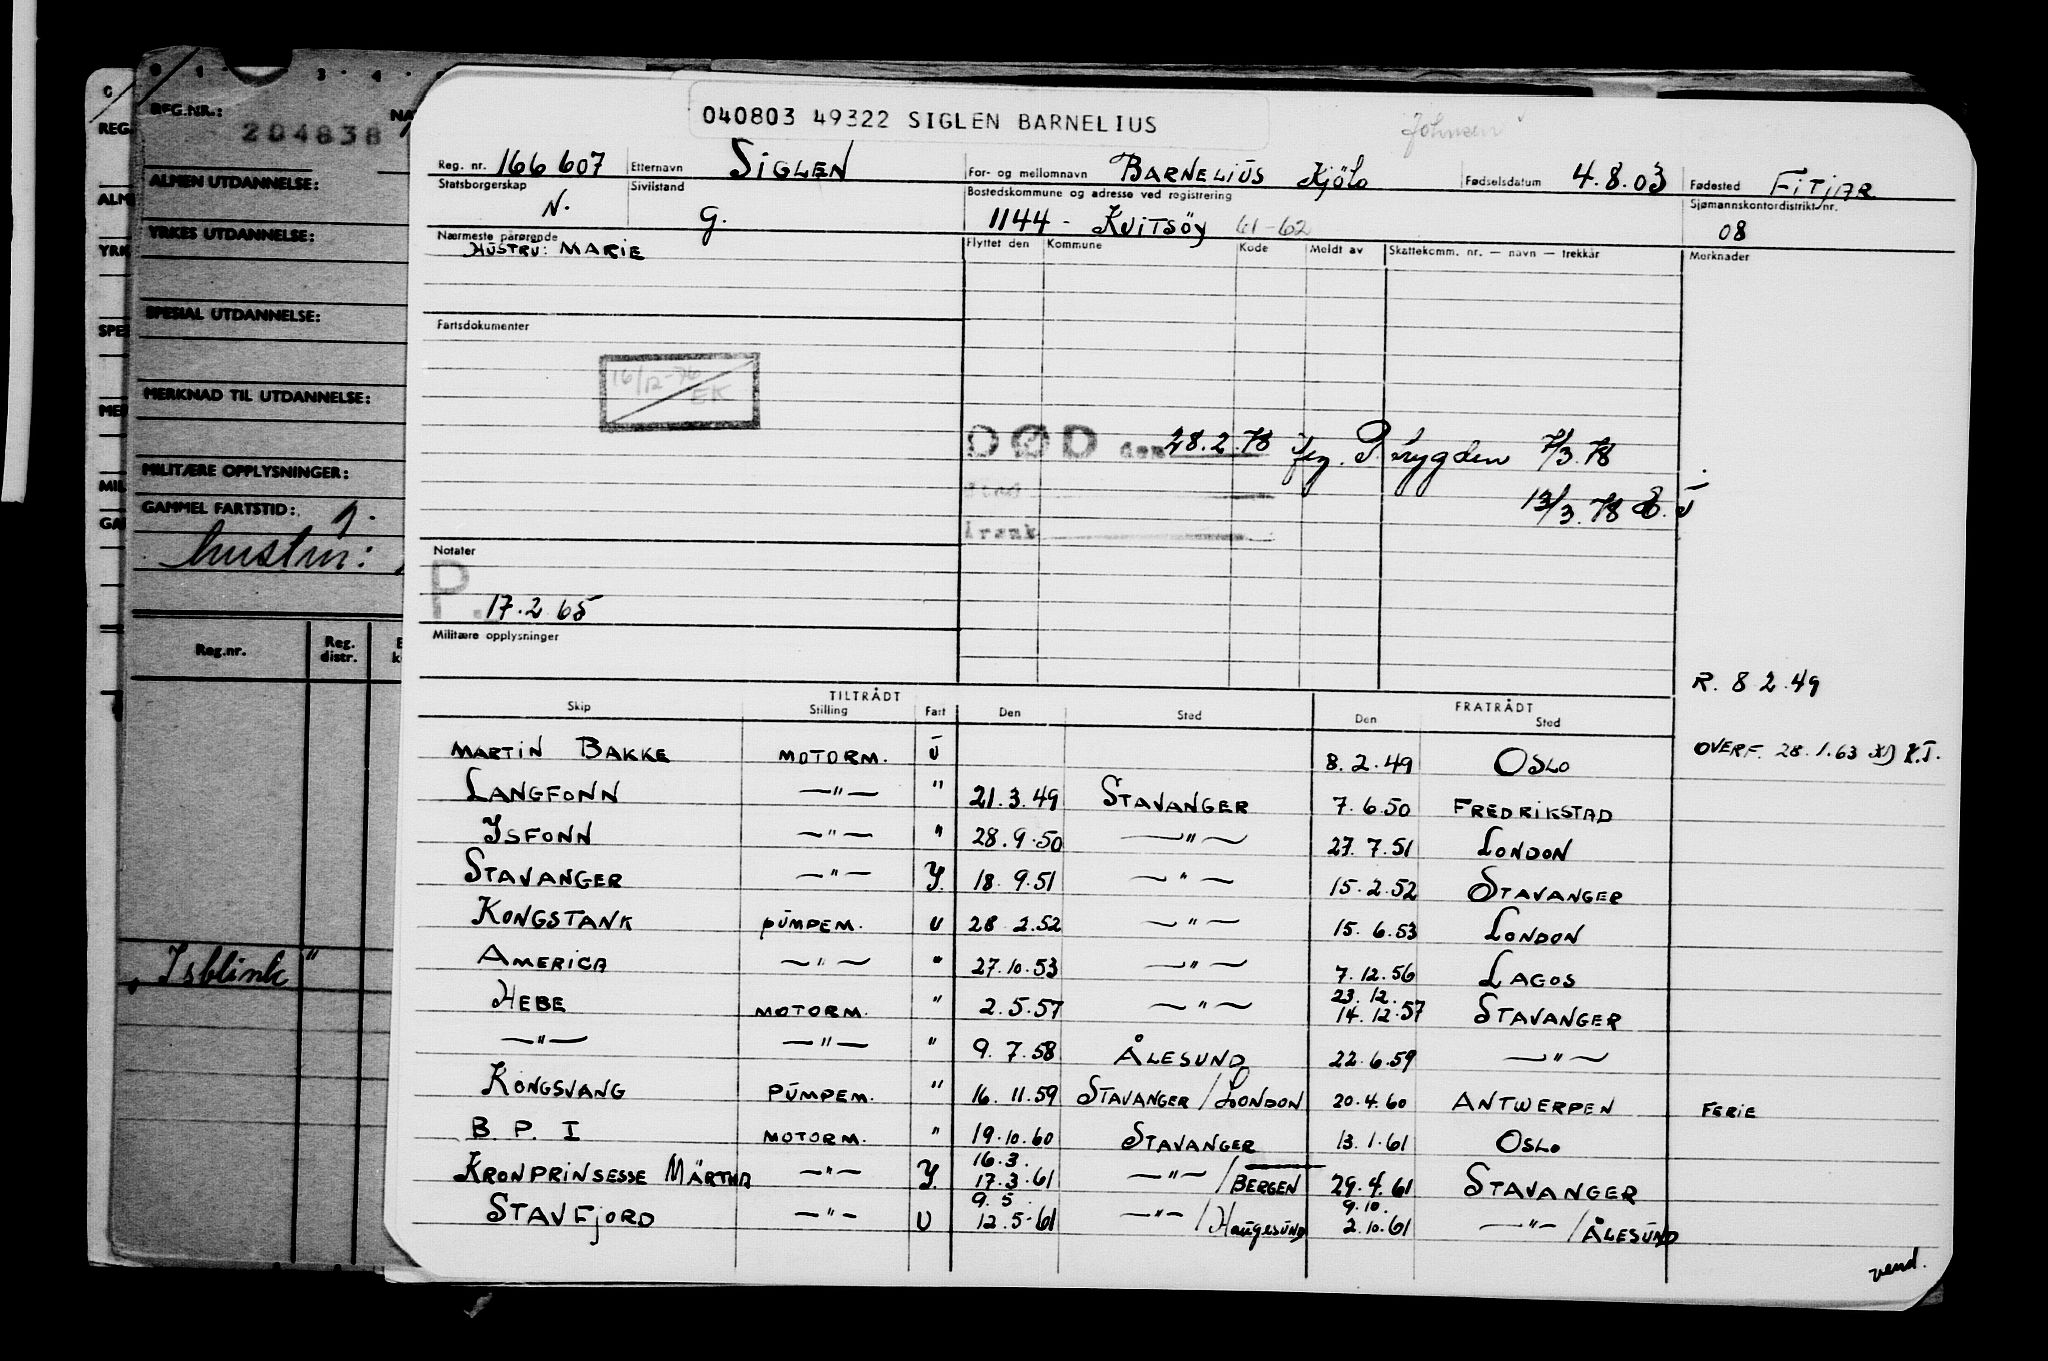 REG.NR.: 204838
ALMEN UTDANNELSE:
YRKES UTDANNELSE:
SPESIAL UTDANNELSE:
MERKNAD TIL UTDANNELSE:
MILITÆRE OPPLYSNINGER:
GAMMEL FARTSTID: g.
hustru:
Reg.nr. Reg. distr.
Isblink "
040803 49322 SIGLEN BARNELIUS
Johnsen
Reg. nr. 166 607 Etternavn SIGLEN For- og mellomnavn BARNELIUS Fødselsdatum 4.8.03 Fødested FITJAR
Statsborgerskap N. Sivilstand G. Bostedskommune og adresse ved registrering 1144 - KVITSÖY 61-62 Sjømannskontordistrikt/nr. 08
Nærmeste pårørende HUSTRU: MARIE
Flyttet den Kommune Kode Meldt av Skattekomm. nr. — navn — trekkår Merknader
Fartsdokumenter
16/12-76 EK
DØD den 28.2.78 7/3.78
Sted 13/3.78
Årsak
Notater
P. 17.2 65
Militære opplysninger
R. 8 2.49
TILTRÅDT FRATRÅDT
Skip Stilling Fart Den Sted Den Sted
MARTIN BAKKE MOTORM. U 8.2.49 OSLO OVERF. 28.1.63 K.J.
LANGFONN —"— " 21.3.49 STAVANGER 7.6.50 FREDRIKSTAD
ISFONN —"— " 28.9.50 —"— 27.7.51 LONDON
STAVANGER —"— Y. 18.9.51 —"— 15.2.52 STAVANGER
KONGSTANK PUMPEM. U 28 2.52 —"— 15.6.53 LONDON
AMERICA —"— " 27.10.53 —"— 7.12.56 LAGOS
HEBE MOTORM. " 2.5.57 —"— 23.12. 14.12.57 STAVANGER
—"— —"— " 9.7.58 ÅLESUND 22.6.59 —"—
KONGSVANG PUMPEM. " 16.11.59 STAVANGER / LONDON 20.4.60 ANTWERPEN FERIE
B. P. I MOTORM. " 19.10.60 STAVANGER 13.1.61 OSLO
KRONPRINSESSE MÄRTHA —"— Y. 16.3. 17.3.61 —"— / BERGEN 29.4.61 STAVANGER
STAVFJORD —"— U 9.5. 12.5.61 —"— / HAUGESUND 9.10. 2.10.61 —"— / ÅLESUND
vend.